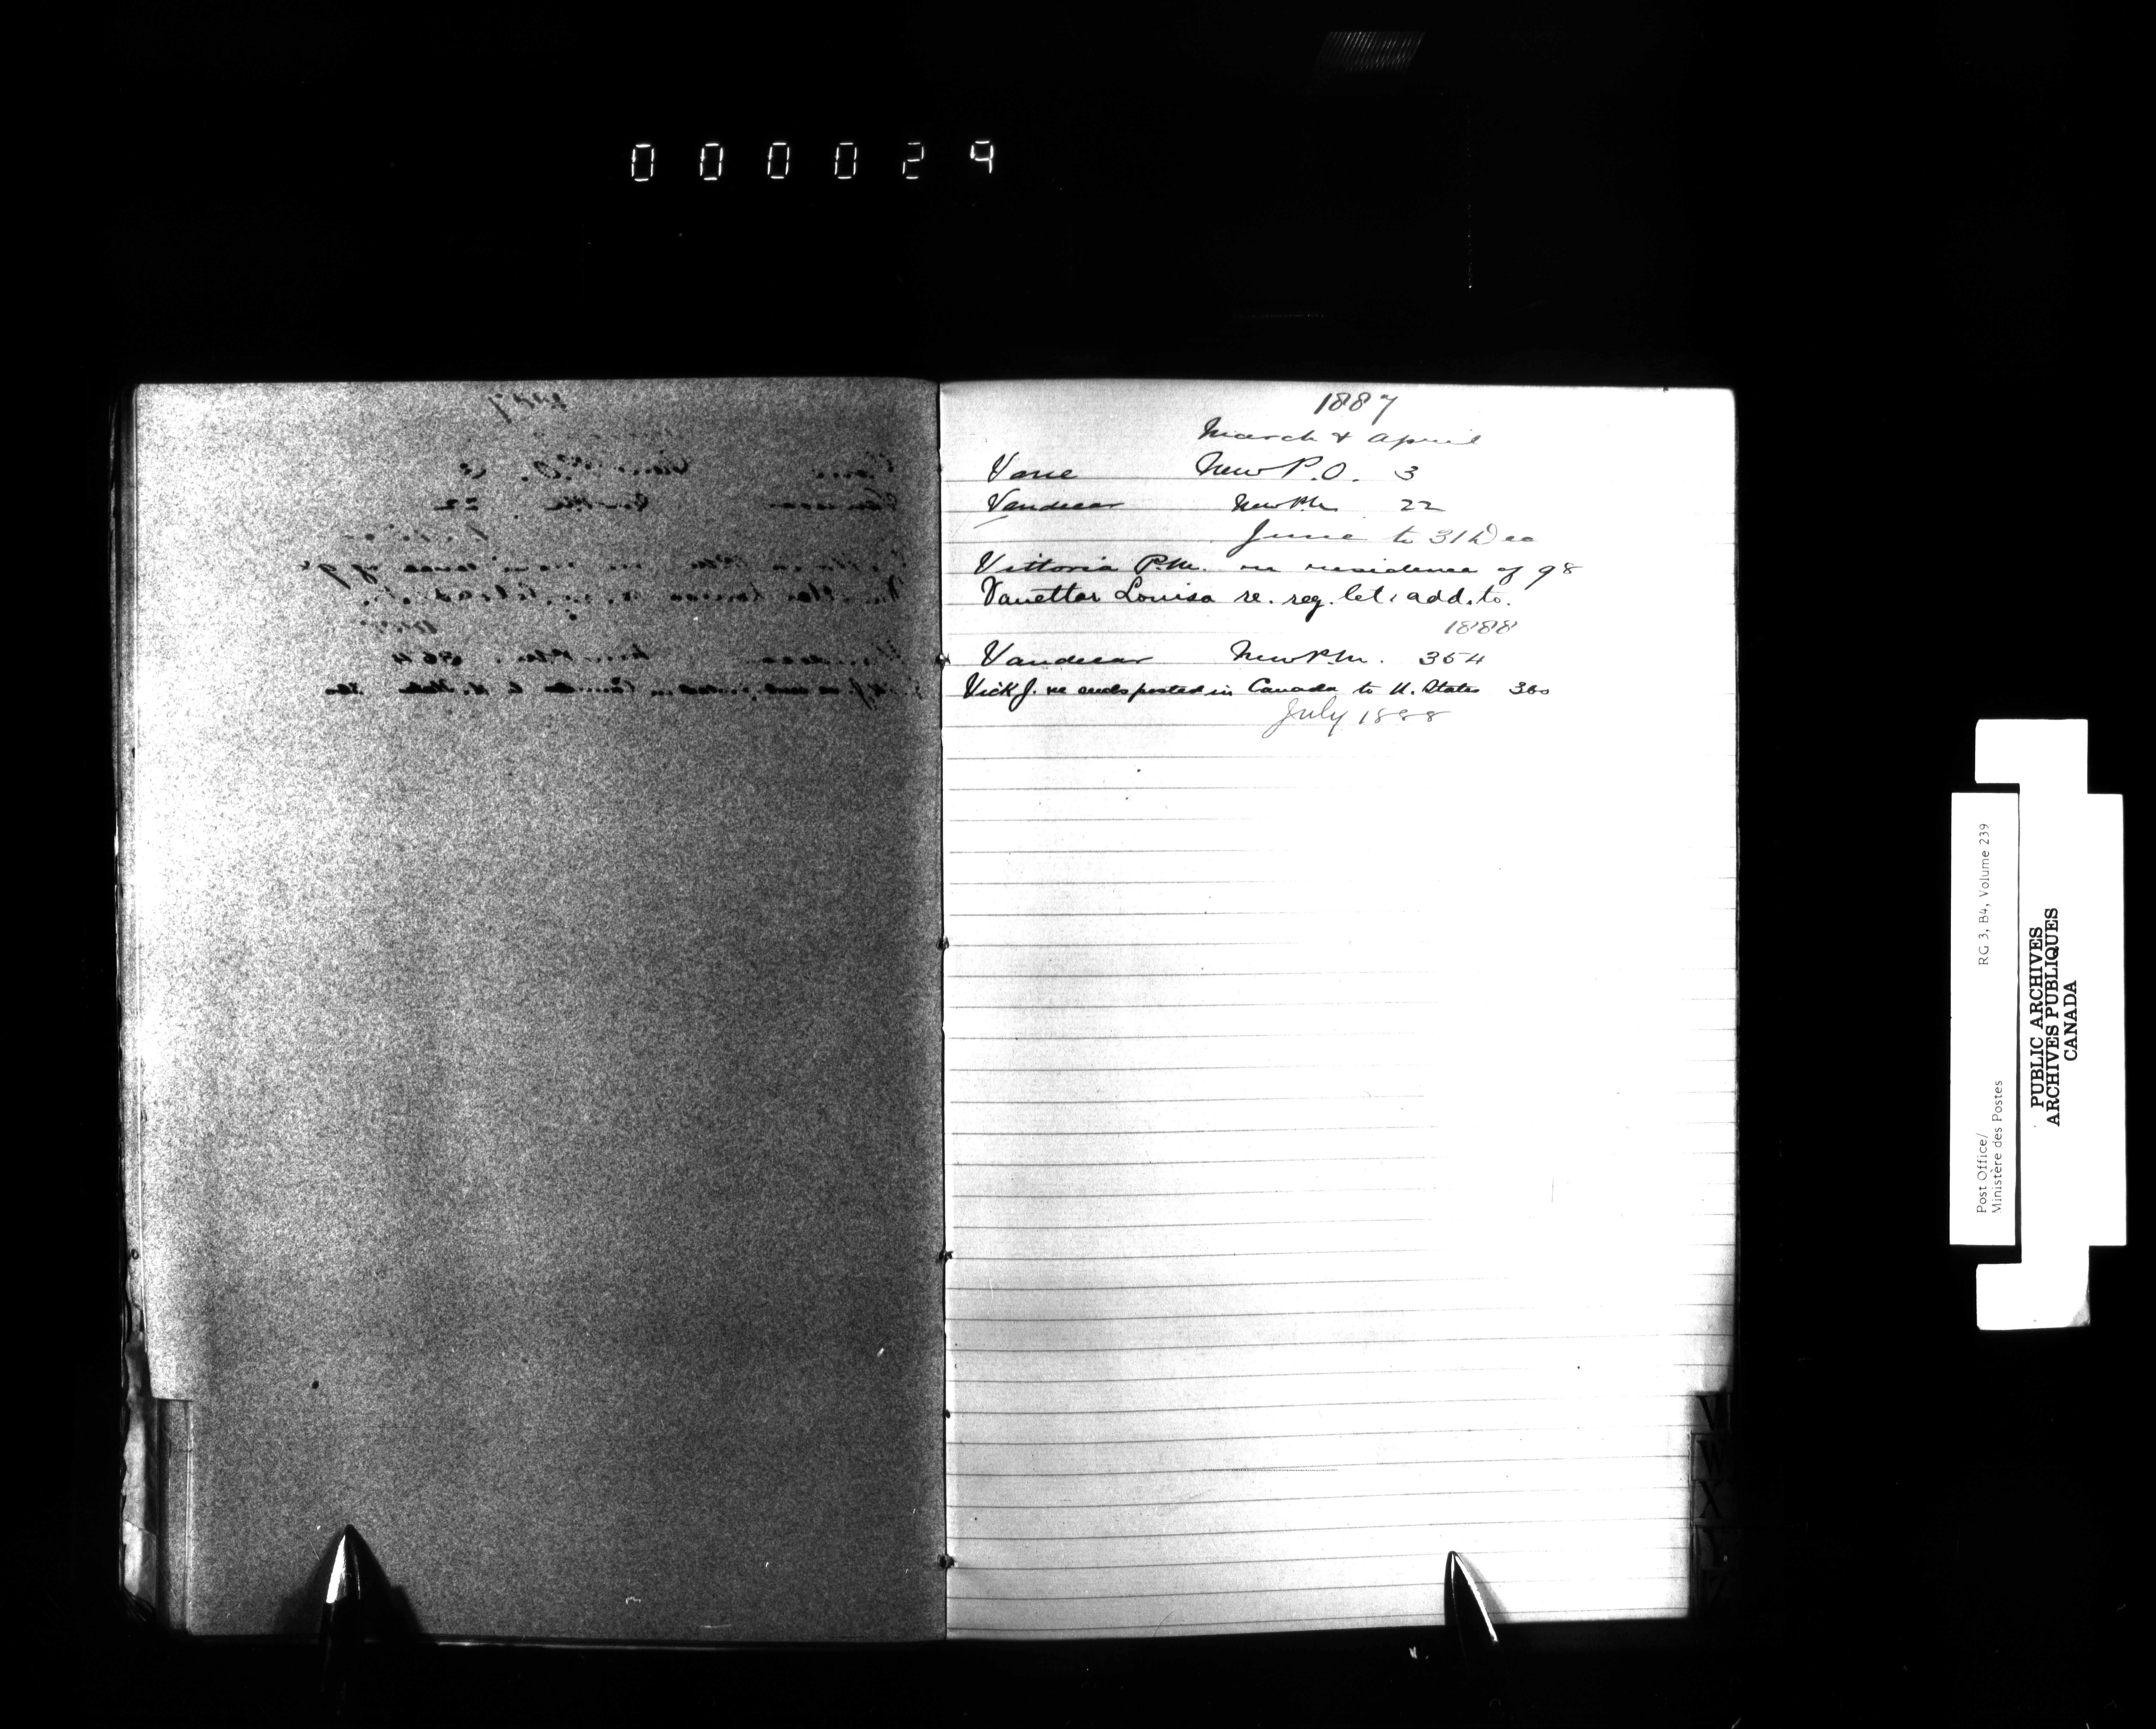 000029
1887
March & April
Vane New P.O. 3
Vandecar New P.M. 22
June to 31 Dec
Vittoria P.M. re residence of 98
Vanettar Louisa re. reg. let. add. to.
1888
Vandecar New P.M. 354
Vick J. re cards posted in Canada to U. States 360
July 1888
V
W
X
Y
Z
Post Office/
Ministère des Postes
RG 3, B4, Volume 239
PUBLIC ARCHIVES
ARCHIVES PUBLIQUES
CANADA